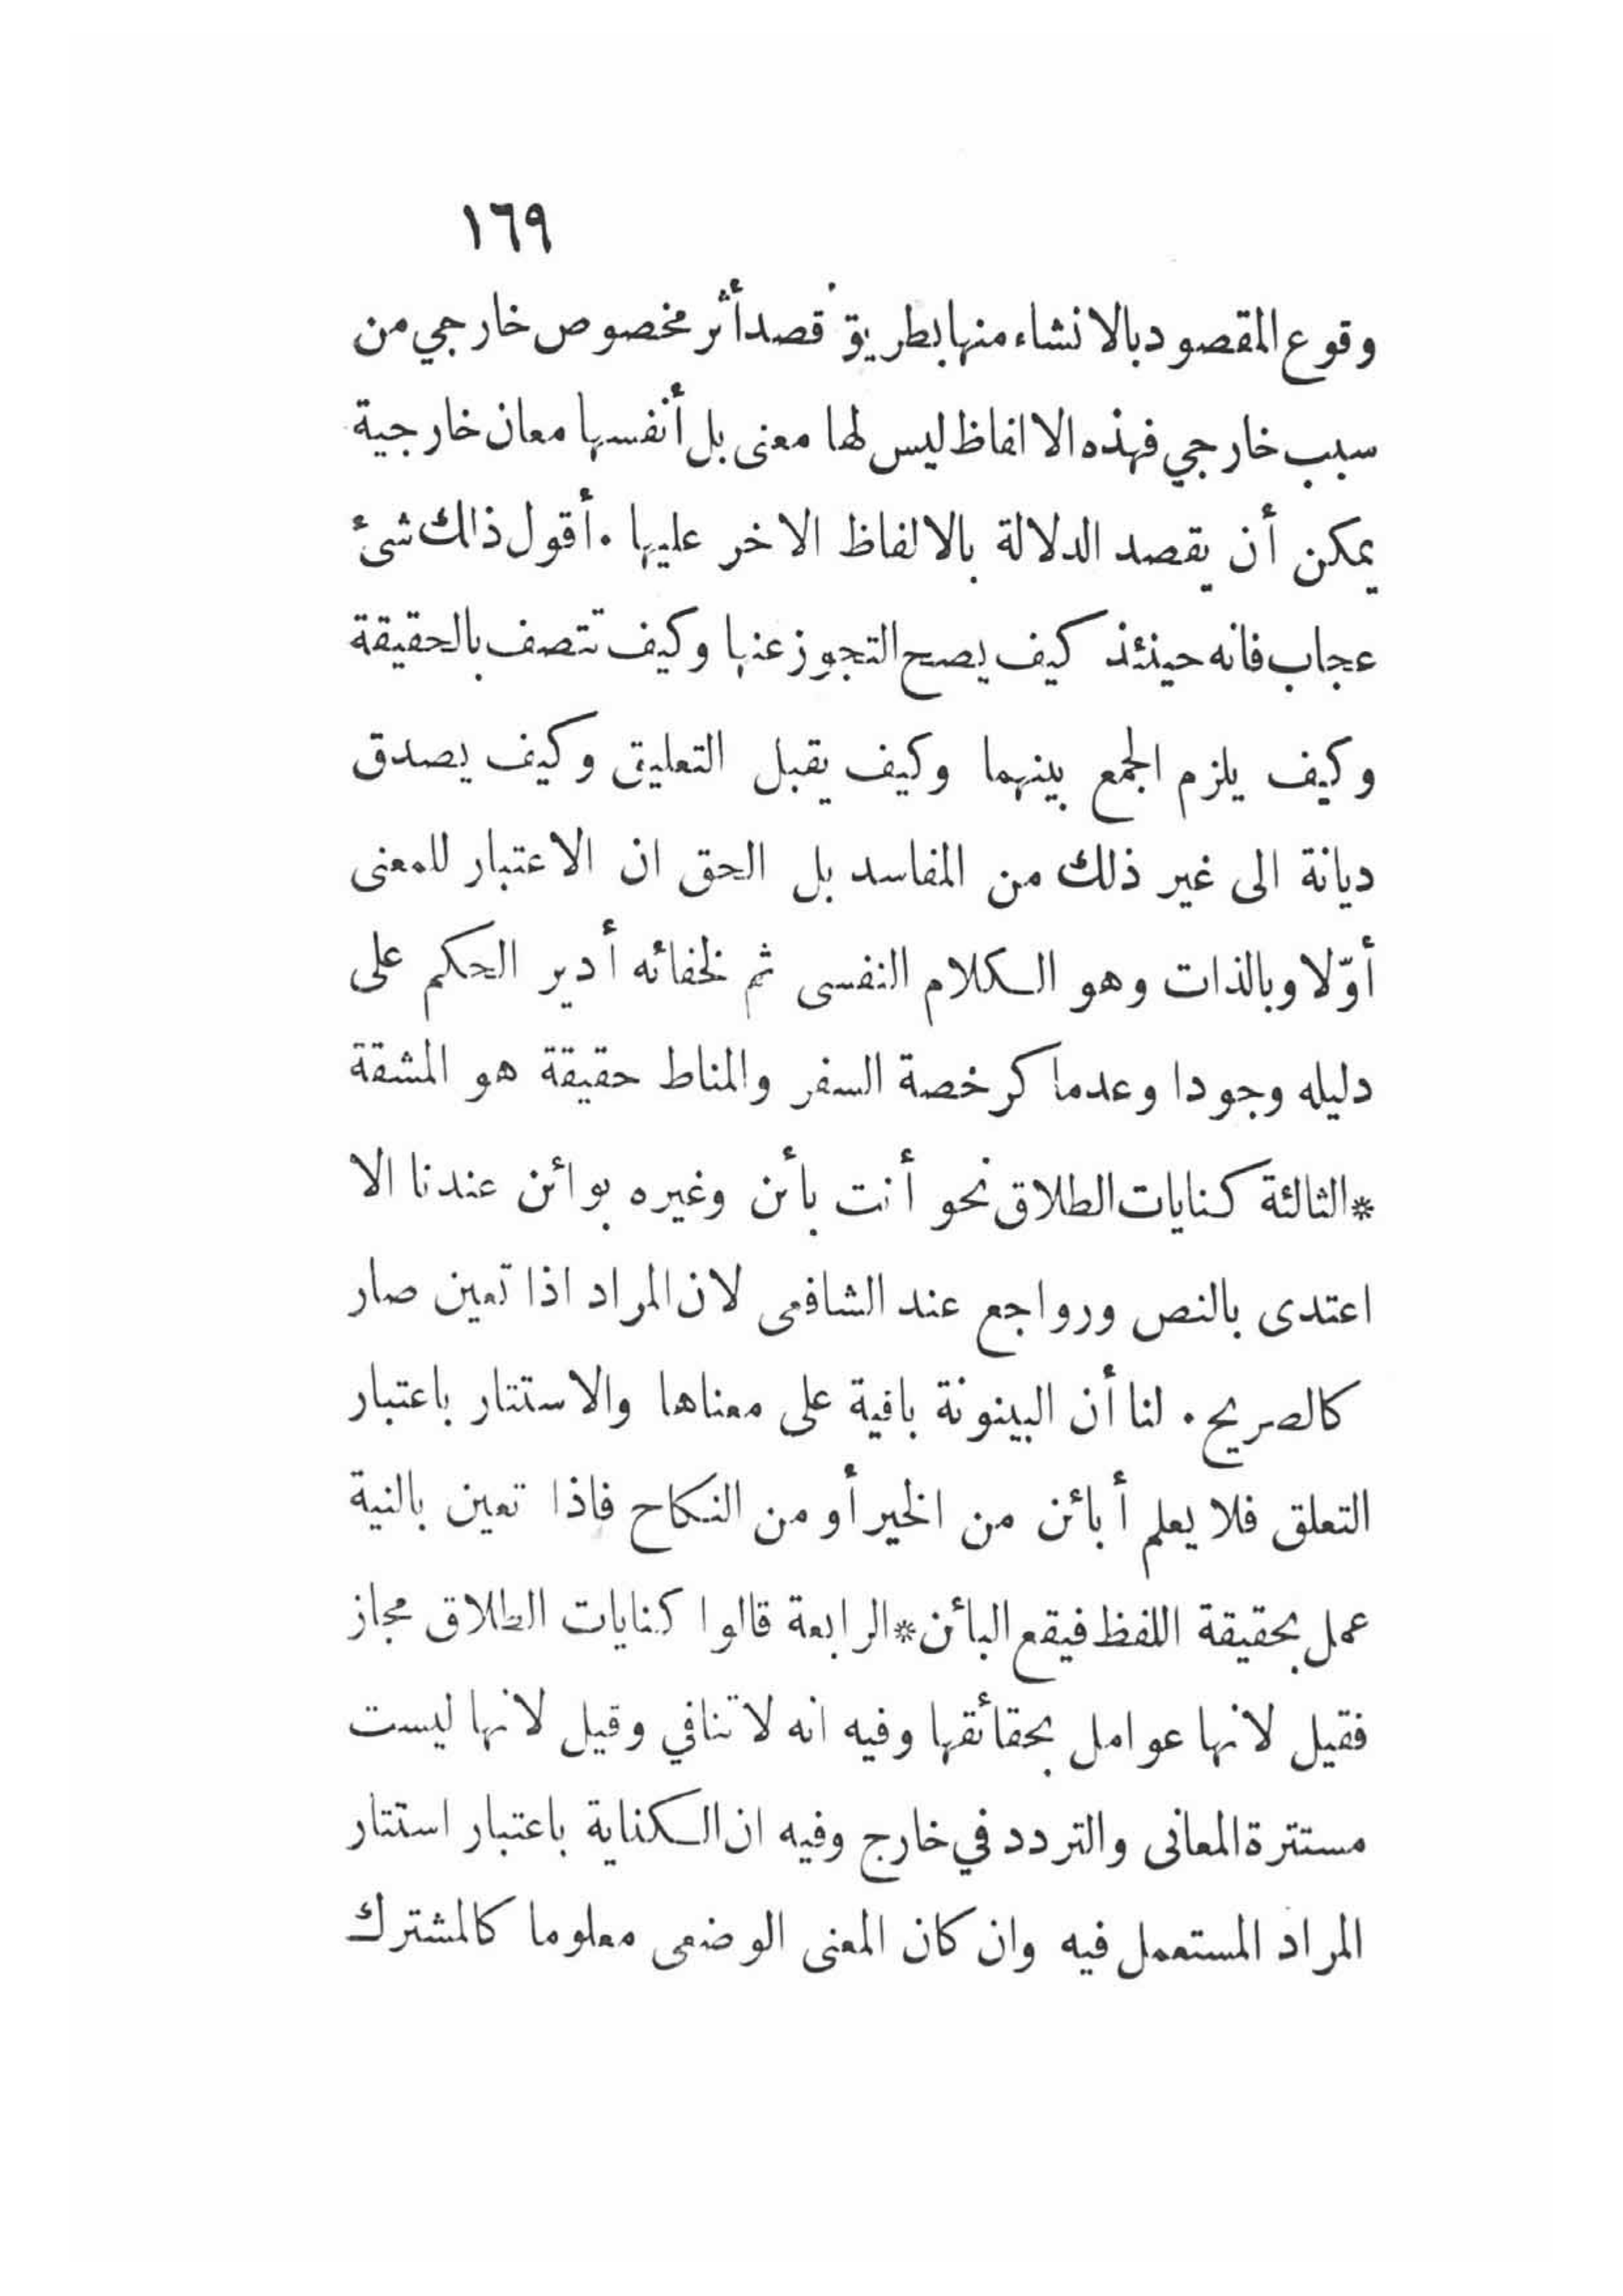 ١٦٩
وقوع المقصود بالانشاء منها بطريق قصد أثر مخصوص خارجي من
سبب خارجي فهذه الالفاظ ليس لها معنى بل أنفسها معان خارجية
يمكن أن يقصد الدلالة بالالفاظ الاخر عليها ٠ أقول ذالك شئ
عجاب فانه حينئذ كيف يصح التجوز عنها وكيف تتصف بالحقيقة
وكيف يلزم الجمع بينهما وكيف يقبل التعليق وكيف يصدق
ديانة الى غير ذلك من المفاسد بل الحق ان الاعتبار للمعنى
أوّلا وبالذات وهو الكلام النفسى ثم لخفائه أدير الحكم على
دليله وجودا وعدما كرخصة السفر والمناط حقيقة هو المشقة
*الثالثة كنايات الطلاق نحو أنت بأن وغيره بوائن عندنا الا
اعتدى بالنص ورواجع عند الشافعى لان المراد اذا تعين صار
كالصريح ٠ لنا أن البينونة باقية على معناها والاستتار باعتبار
التعلق فلا يعلم أبائن من الخير أو من النكاح فاذا تعين بالنية
عمل بحقيقة اللفظ فيقع البائن*الرابعة قالوا كنايات الطلاق مجاز
فقيل لانها عوامل بحقائقها وفيه انه لا تنافي وقيل لانها ليست
مستترة المعانى والتردد في خارج وفيه ان الكناية باعتبار استتار
المراد المستعمل فيه وان كان المعنى الوضعى معلوما كالمشترك